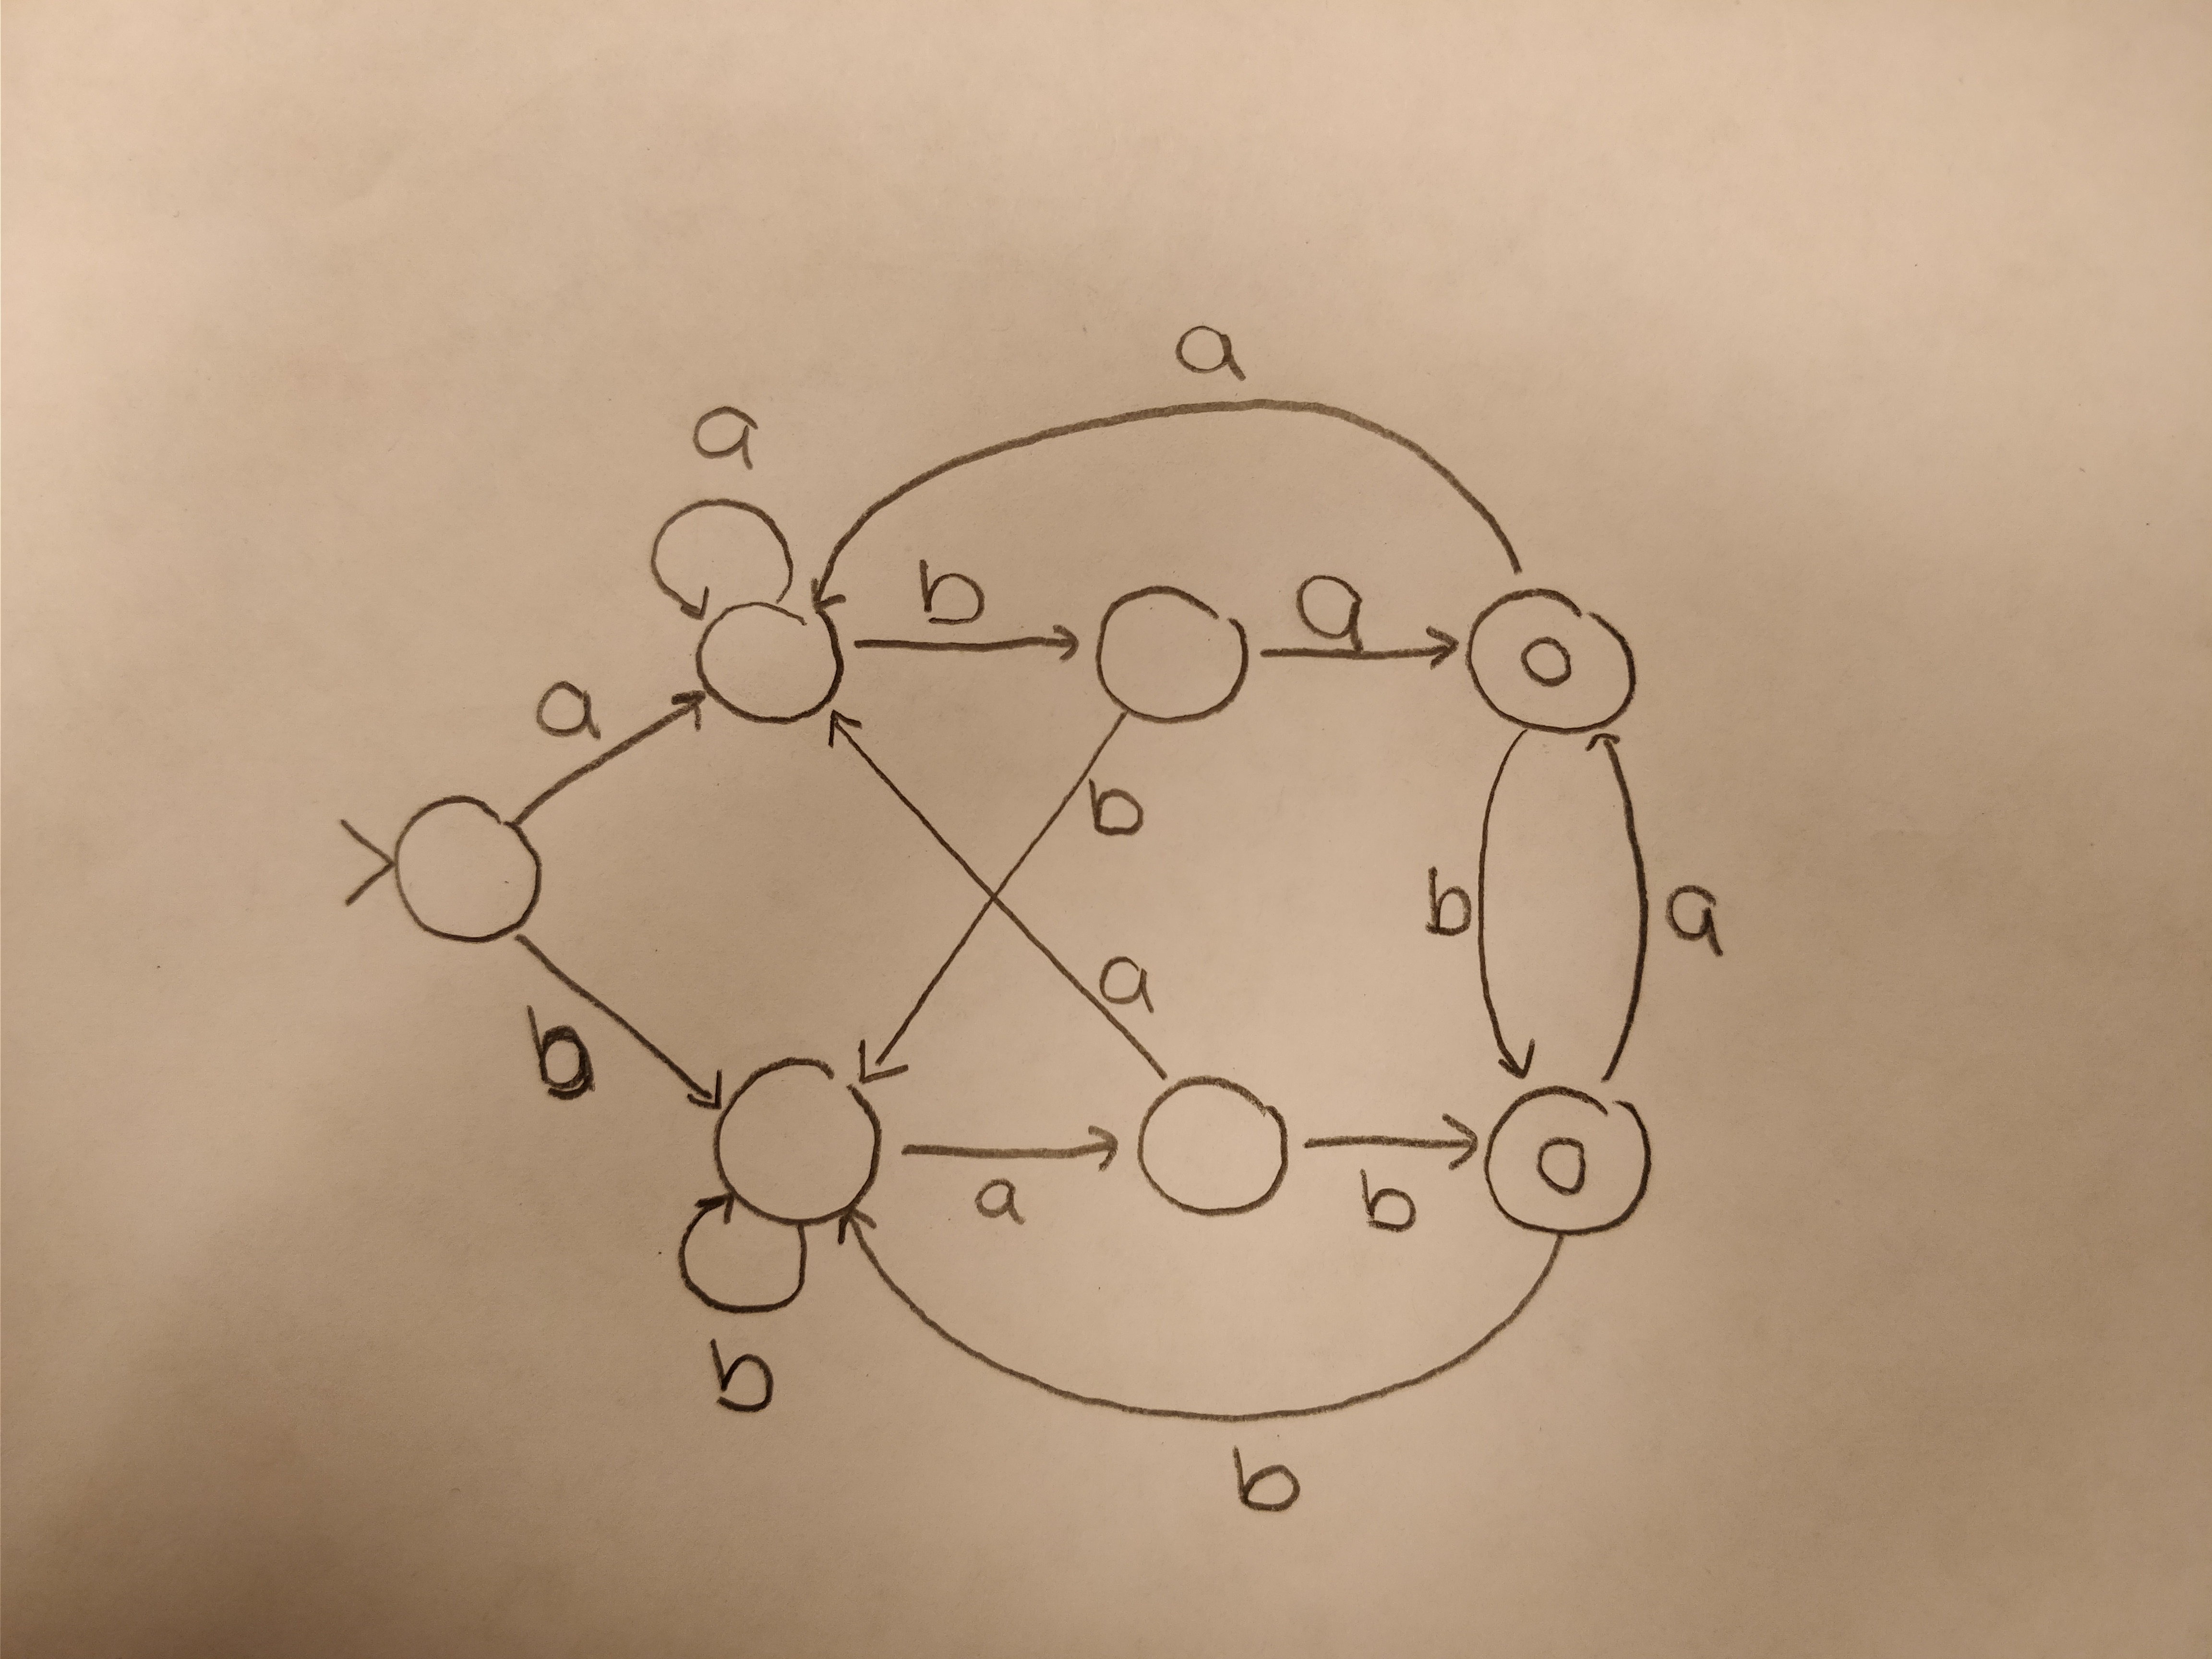 a
a
b
a
a
b
b
a
a
b
a
b
b
b